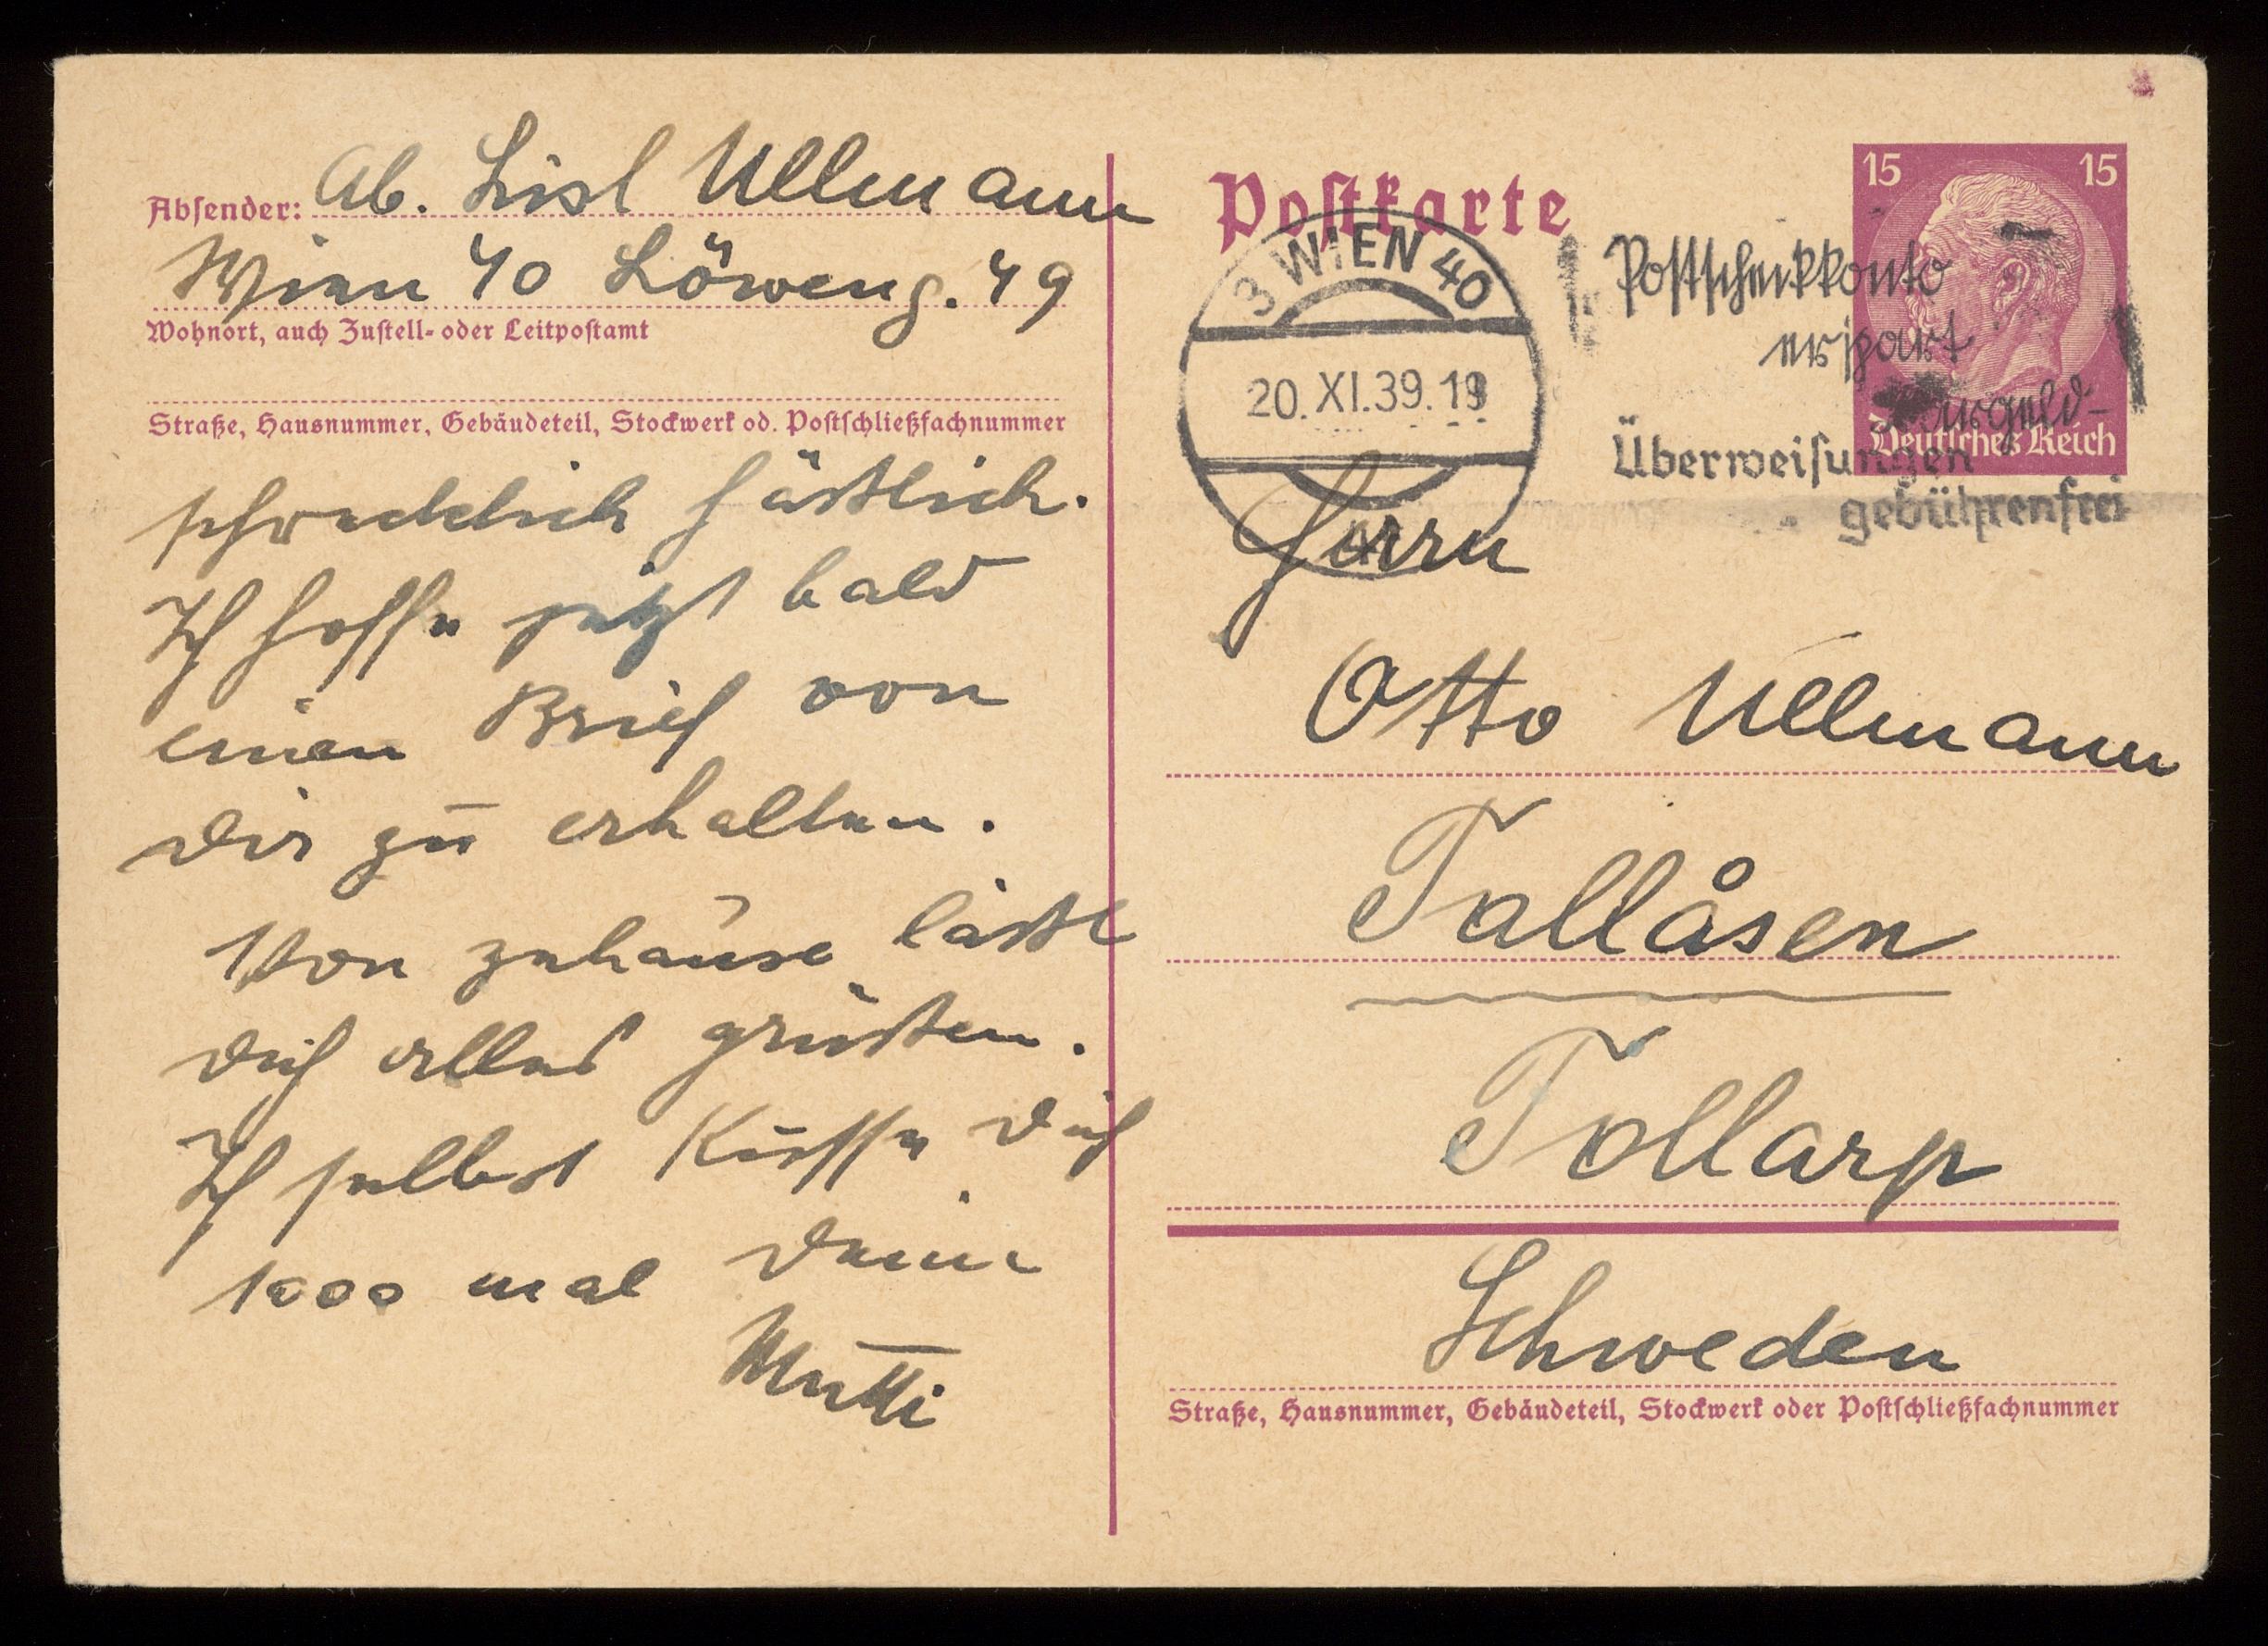 Absender: Ab. Lisl Ullmann
Wien 40 Löweng. 49
Wohnort, auch Zustell- oder Leitpostamt
Straße, Hausnummer, Gebäudeteil, Stockwerk od. Postschließfachnummer
schrecklich häßlich.
Ich hoffe jetzt bald
einen Brief von
Dir zu erhalten.
Von zuhause läßt
Dich alles grüßen.
Ich selbst küsse Dich
1000 mal Deine
Mutti
Postkarte
15 15
Deutsches Reich
3 WIEN 40
20.XI.39.19
Postscheckkonto
erspart
Bargeld-
Überweisungen
gebührenfrei
Herrn
Otto Ullmann
Tallåsen
Tollarp
Schweden
Straße, Hausnummer, Gebäudeteil, Stockwerk oder Postschließfachnummer